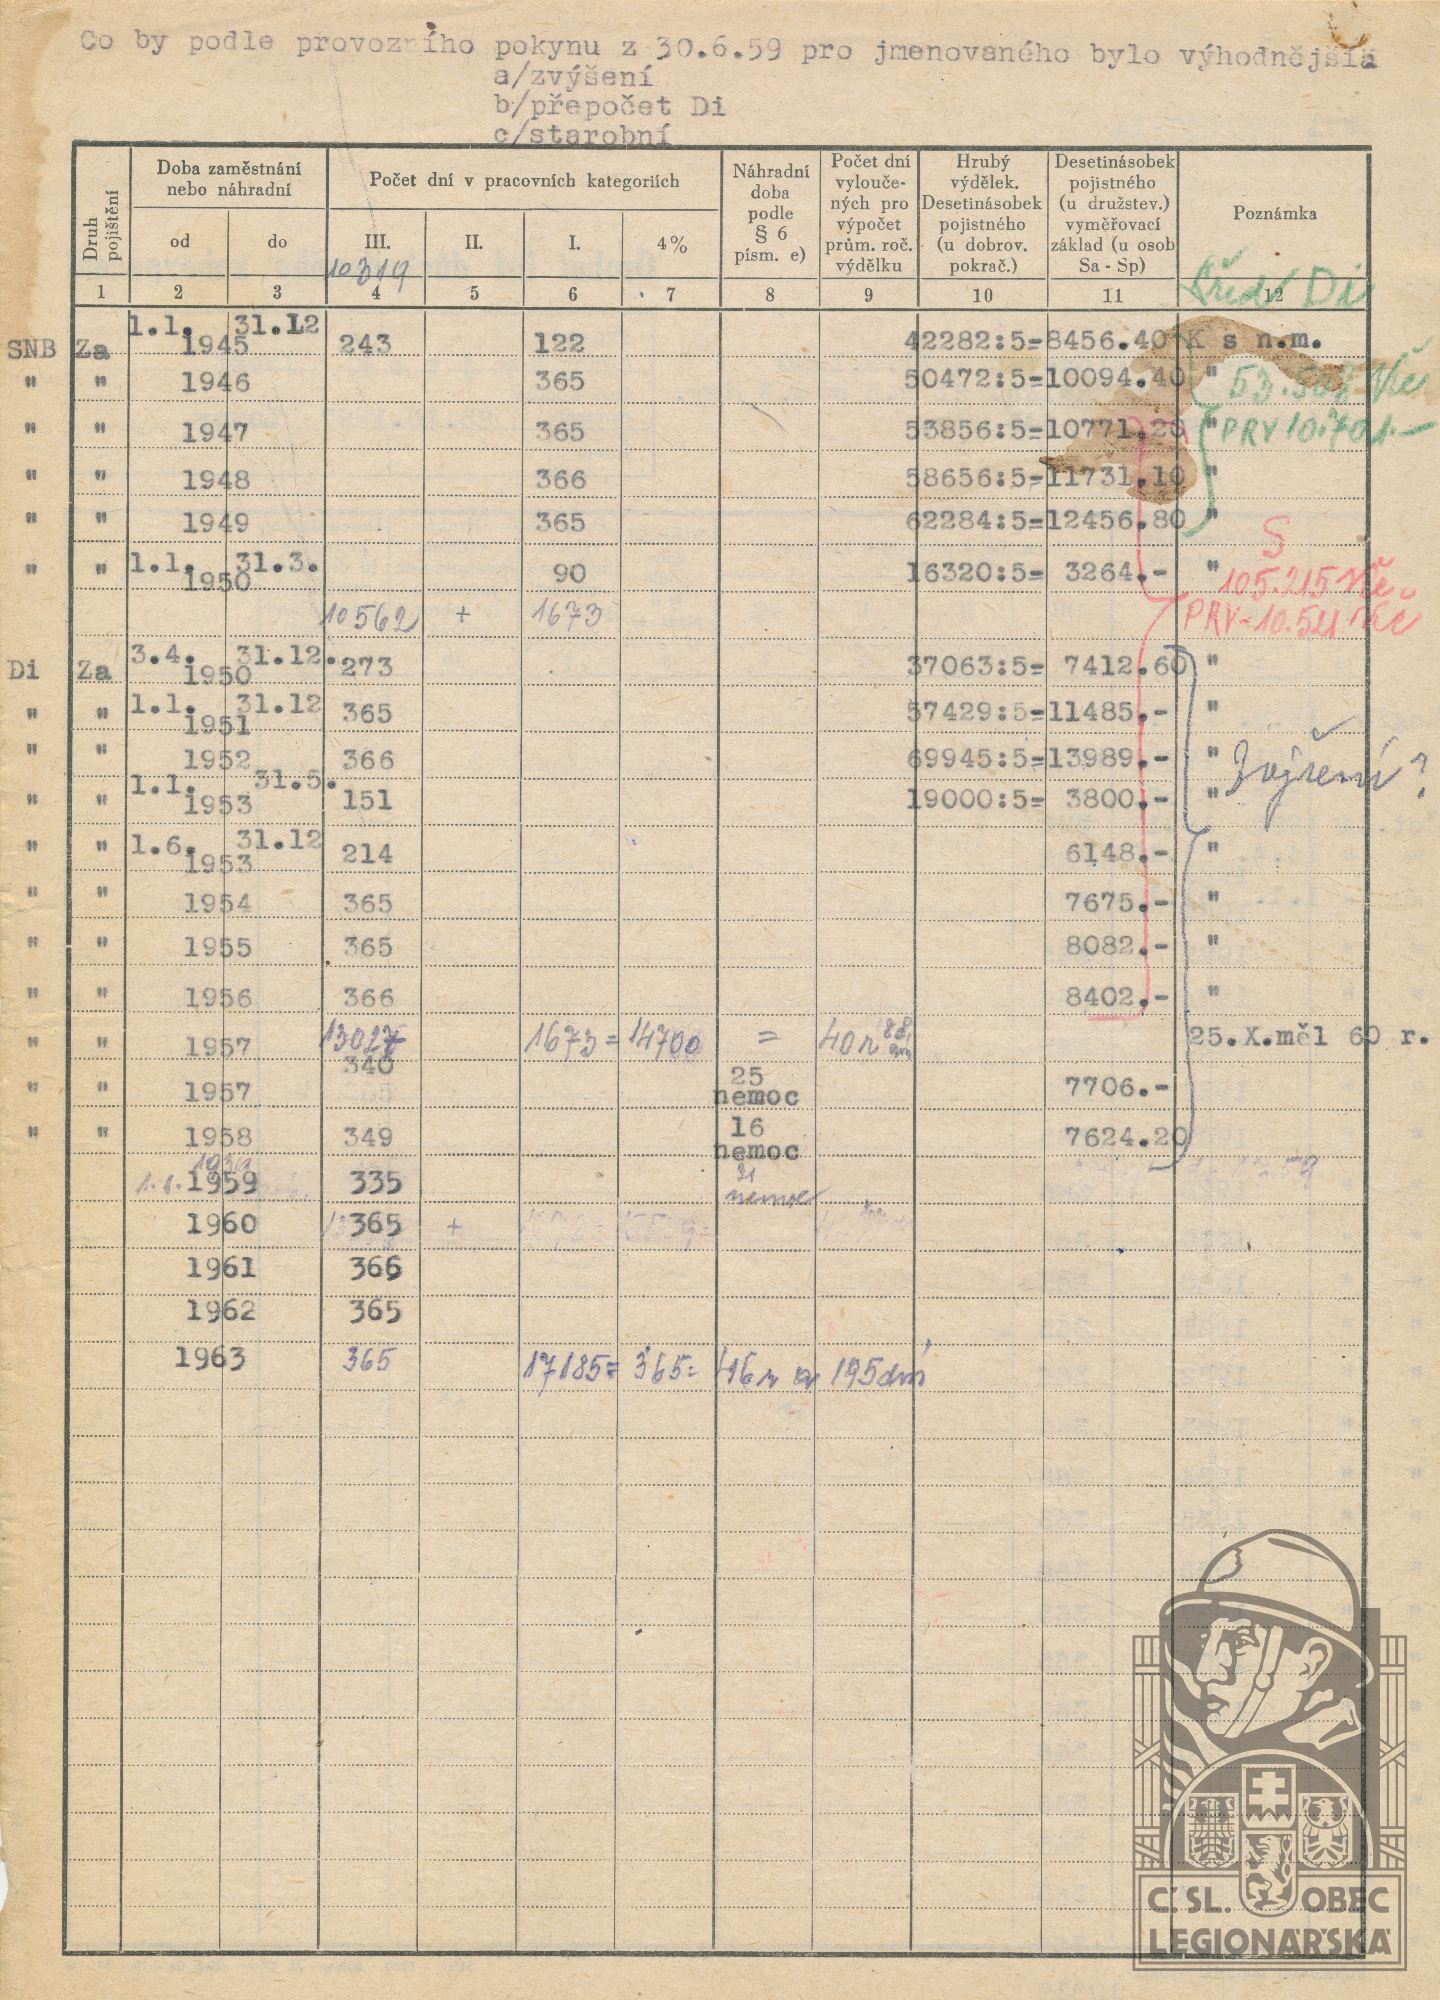 Co by podle provozního pokynu z 30.6.59 pro jmenovaného bylo výhodnějšía
a/zvýšení
b/přepočet Di
c/starobní
Druh pojištění
Doba zaměstnání nebo náhradní
od
do
Počet dní v pracovních kategoriích
III.
II.
I.
4%
Náhradní doba podle § 6 písm. e)
Počet dní vyloučených pro výpočet prům. roč. výdělku
Hrubý výdělek. Desetinásobek pojistného (u dobrov. pokrač.)
Desetinásobek pojistného (u družstev.) vyměřovací základ (u osob Sa - Sp)
Poznámka
10319
1 2 3 4 5 6 7 8 9 10 11 12
Di
SNB Za 1.1. 31.12 1945 243 122 42282:5=8456.40 K s n.m.
" " 1946 365 50472:5=10094.40 "
" " 1947 365 53856:5=10771.20 " PRV 10.701.—
" " 1948 366 58656:5=11731.10 "
" " 1949 365 62284:5=12456.80 "
S
" " 1.1. 31.3. 1950 90 16320:5= 3264.- " 105.215 Kčs
10562 + 1673 PRV-10.521 Kčs
Di Za 3.4. 31.12. 1950 273 37063:5= 7412.60 "
" " 1.1. 31.12 1951 365 57429:5=11485.- "
" " 1952 366 69945:5=13989.- "
" " 1.1. 31.5. 1953 151 19000:5= 3800.- "
" " 1.6. 31.12 1953 214 6148.- "
" " 1954 365 7675.- "
" " 1955 365 8082.- "
" " 1956 366 8402.- "
" " 1957 13027 1673 = 14700 = 40 r 25.X.měl 60 r.
" " 1957 340 25 nemoc 7706.-
" " 1958 349 16 nemoc 7624.20
1.1. 1959 335 21 nemoc
1960 365 +
1961 366
1962 365
1963 365 17185= 365= 46 r a 195 dní
ČSL. OBEC
LEGIONÁŘSKÁ